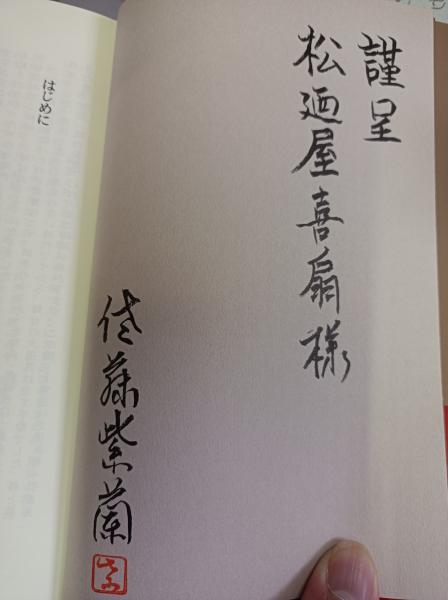 謹呈
松廼屋喜扇様
佐藤紫蘭
はじめに